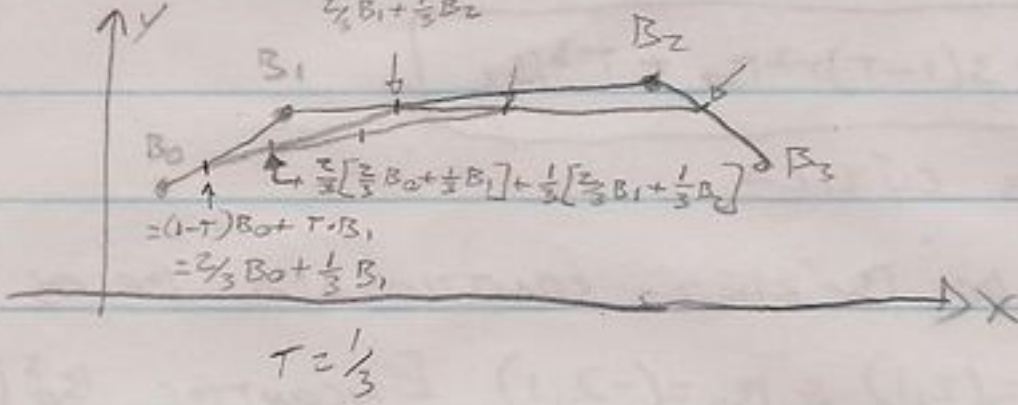 y
2/3 B1 + 1/3 B2
B2
B1
B0
2/3[2/3 B0 + 1/3 B1] + 1/3[2/3 B1 + 1/3 B2]
B3
= (1-T)B0 + T·B1
= 2/3 B0 + 1/3 B1
X
T = 1/3